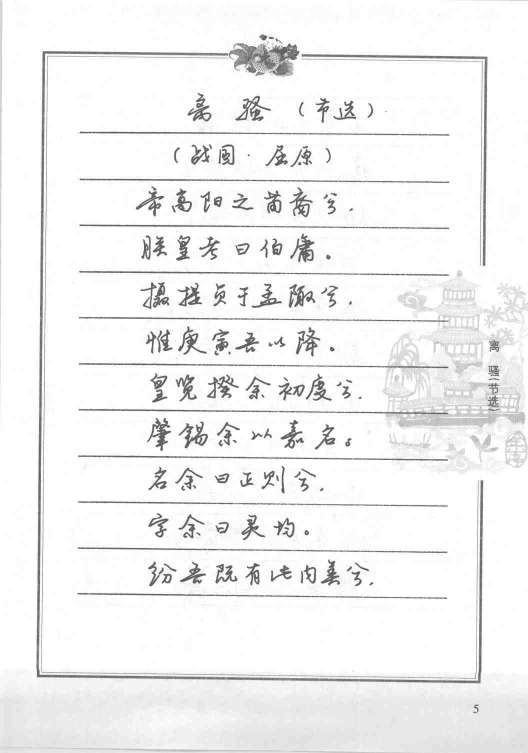 离骚（节选）
（战国·屈原）
帝高阳之苗裔兮，
朕皇考曰伯庸。
摄提贞于孟陬兮，
惟庚寅吾以降。
皇览揆余初度兮，
肇锡余以嘉名。
名余曰正则兮，
字余曰灵均。
纷吾既有此内美兮，
离骚（节选）
5